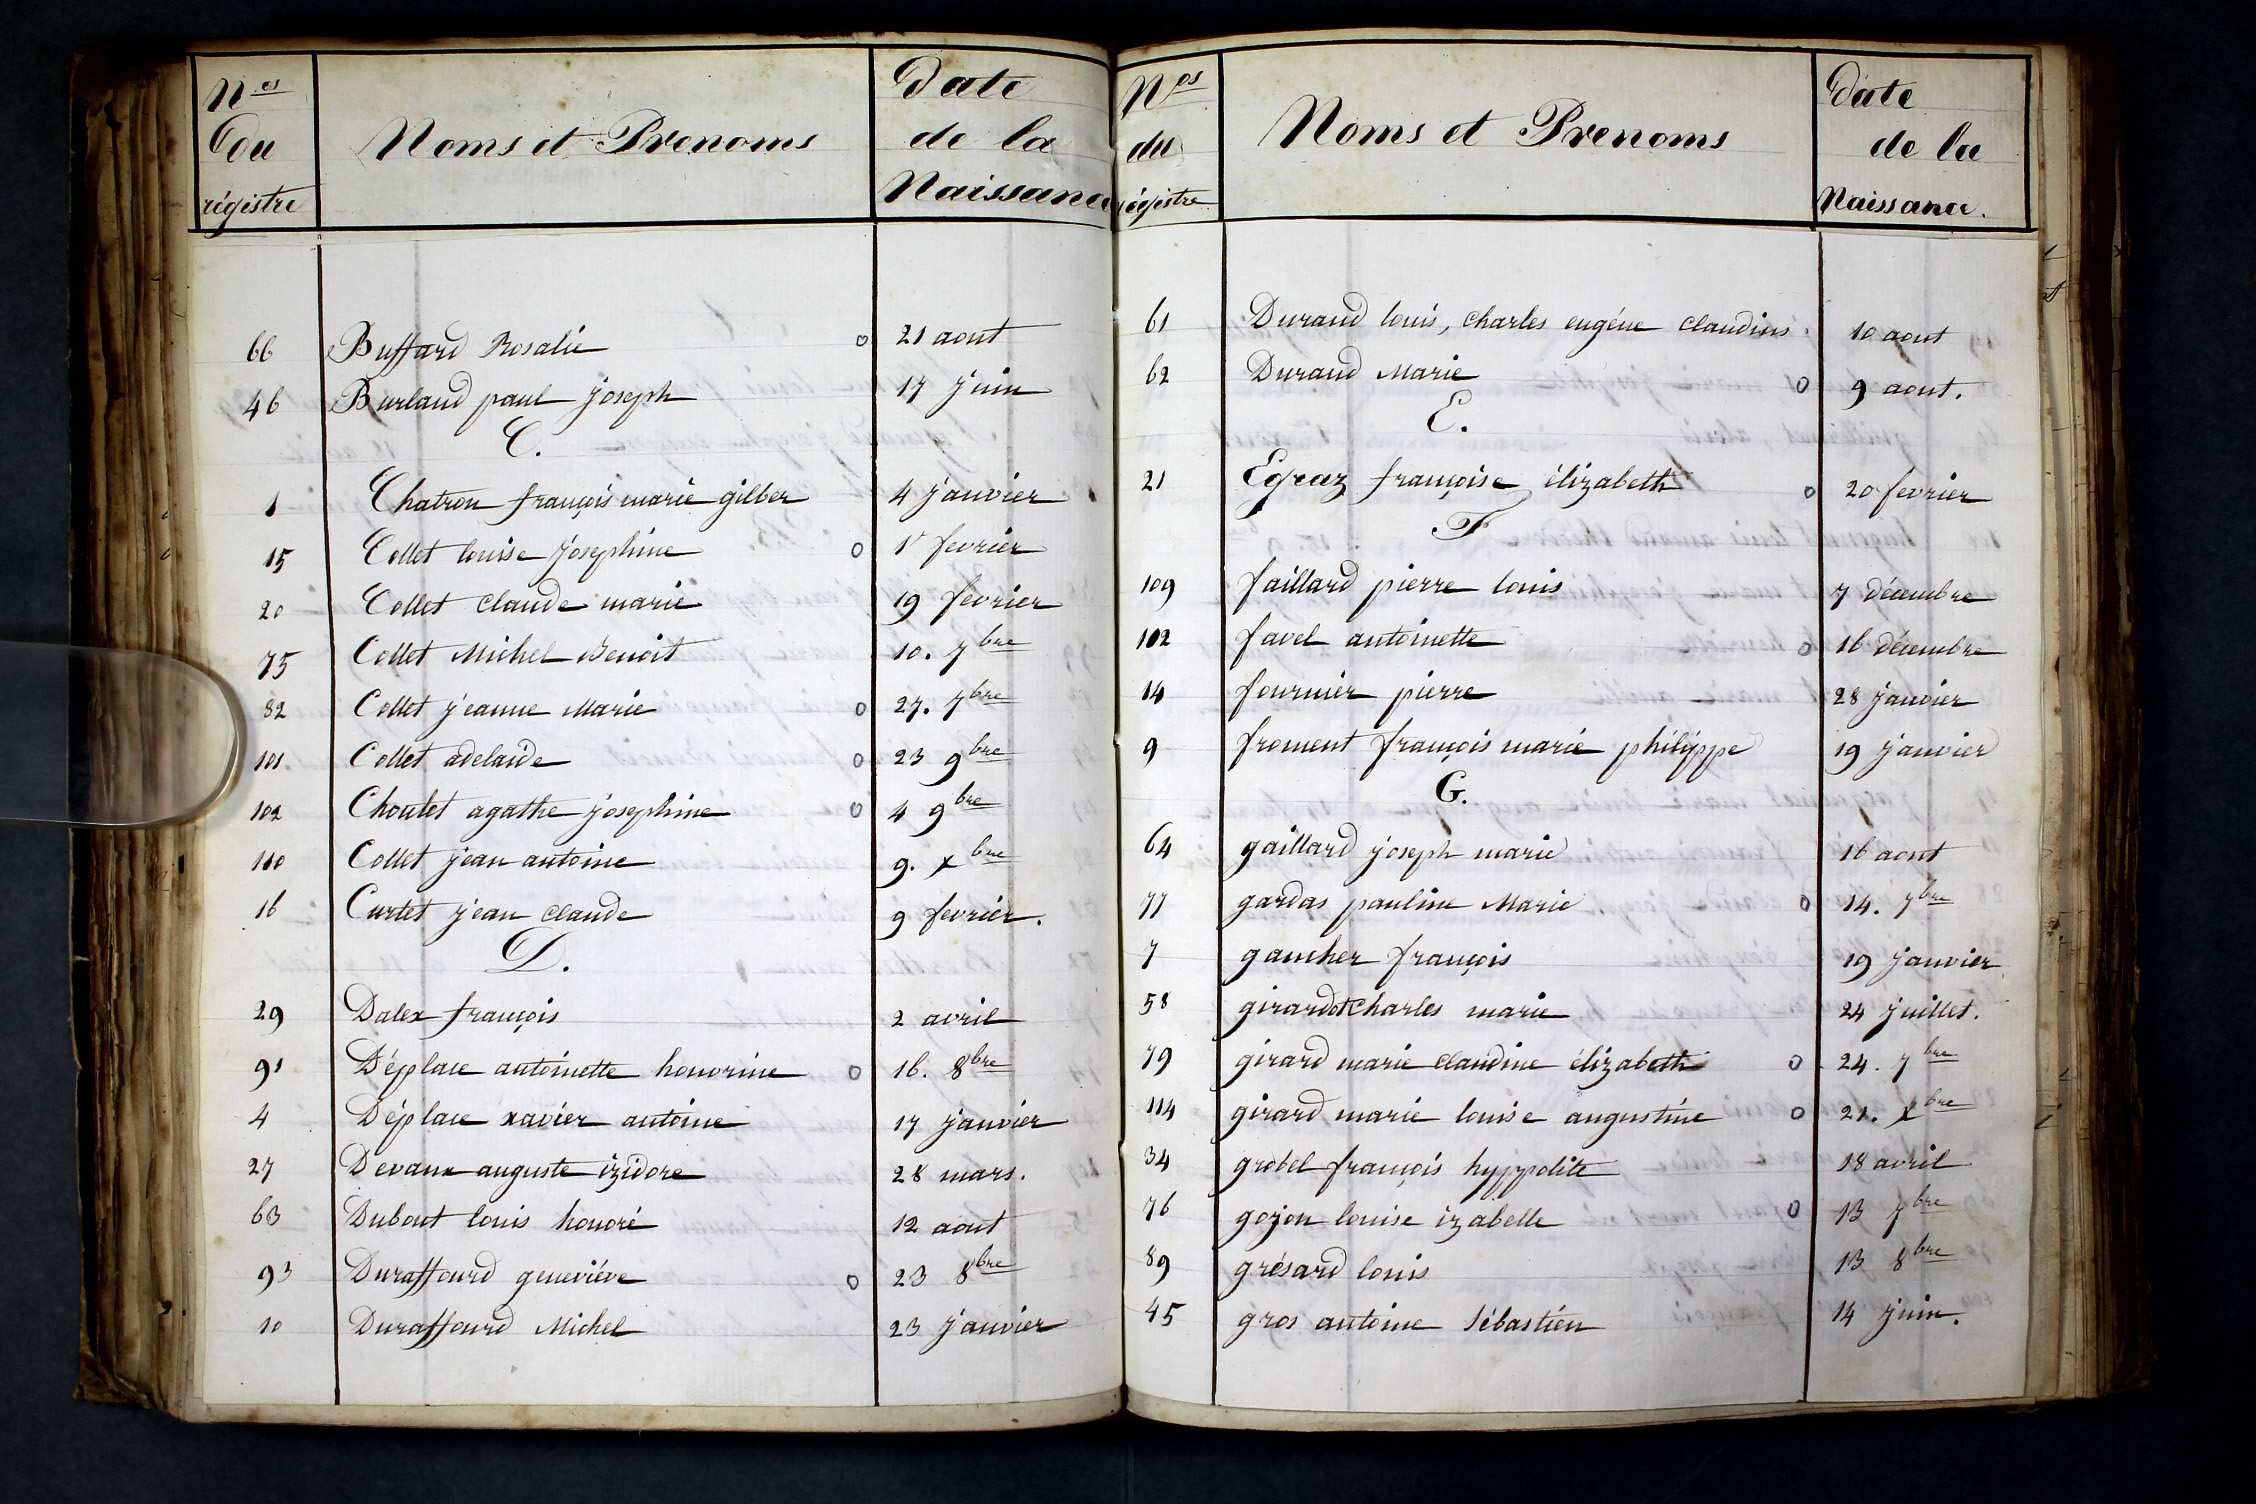 Nos du régistre Noms et Prenoms Date de la Naissance
66 Buffard Rosalie o 21 aout
46 Burland paul joseph 17 juin
C.
1 Chatron françois marie gilber 4 janvier
15 Collet louise josephine o 1r fevrier
20 Collet claude marie 19 fevrier
75 Collet Michel Benoit 10. 7bre
82 Collet jeanne Marie o 27. 7bre
101. Collet adelaide o 23 9bre
102 Choulet agathe josephine o 4 9bre
110 Collet jean antoine 9. xbre
16 Curtet jean claude 9 fevrier.
D.
29 Dalex françois 2 avril
91 Déplace antoinette honorine o 16. 8bre
4 Déplace xavier antoine 17 janvier
27 Devaux auguste izidore 28 mars.
63 Dubout louis honoré 12 aout
93 Duraffourd geneviéve o 23 8bre
10 Duraffourd Michel 23 janvier
Nos du régistre Noms et Prenoms Date de la Naissance.
61 Durand louis, charles eugéne claudius 10 aout
62 Durand Marie o 9 aout.
E.
21 Egraz françoise élizabeth o 20 fevrier
F
109 faillard pierre louis 7 décembre
112 favel antoinette o 16 décembre
14 fournier pierre 28 janvier
9 froment françois marie philippe 19 janvier
G.
64 gaillard joseph marie 16 aout
77 gardas pauline Marie o 14. 7bre
7 gaucher françois 19 janvier
58 girardot charles marie 24 juillet.
79 girard marie claudine élizabeth o 24. 7bre
114 girard marie louise augustine o 21. xbre
34 grobel françois hyppolite 18 avril
76 gojon louise izabelle o 13 7bre
89 grésard louis 13 8bre
45 gros antoine Sébastien 14 juin.